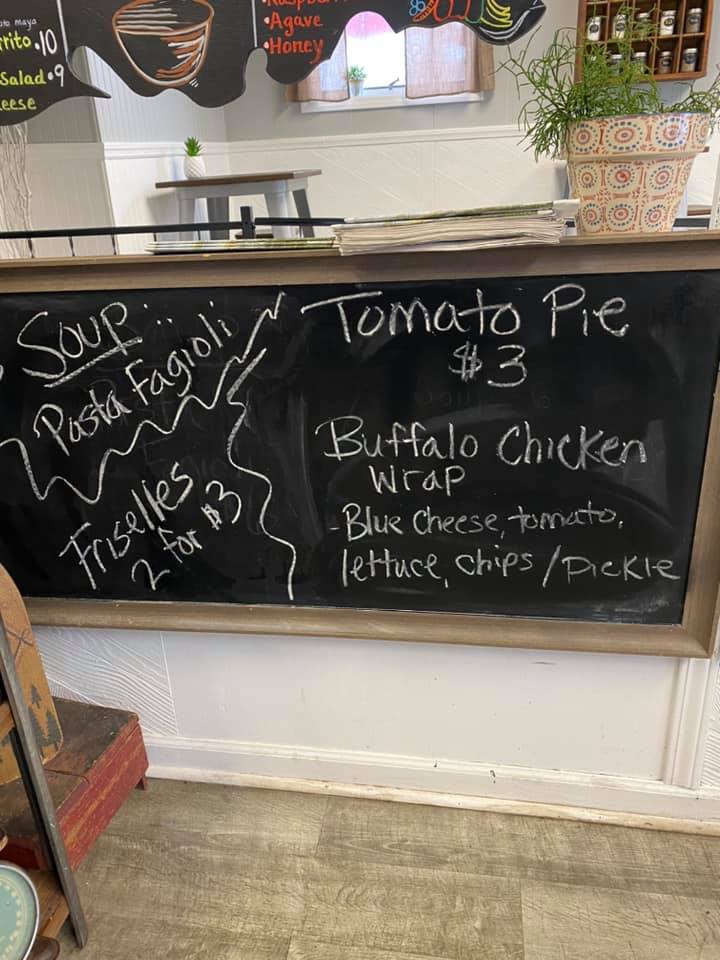 rrito .10
Salad .9
eese
•Agave
•Honey
Soup...
Pasta Fagioli
Friselles
2 for $3
Tomato Pie
$3
Buffalo Chicken
Wrap
- Blue Cheese, tomato,
lettuce, chips / Pickle